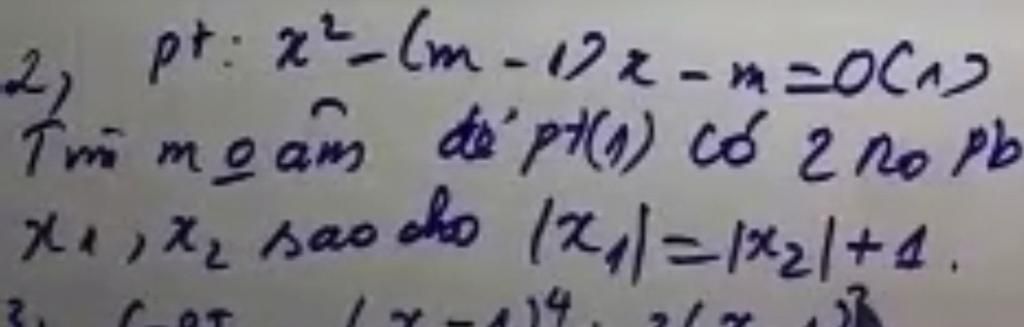 2, pt: x² - (m - 1)x - m = 0 (1)
Tìm m o âm để pt(1) có 2 no pb
x₁, x₂ sao cho |x₁| = |x₂| + 1.